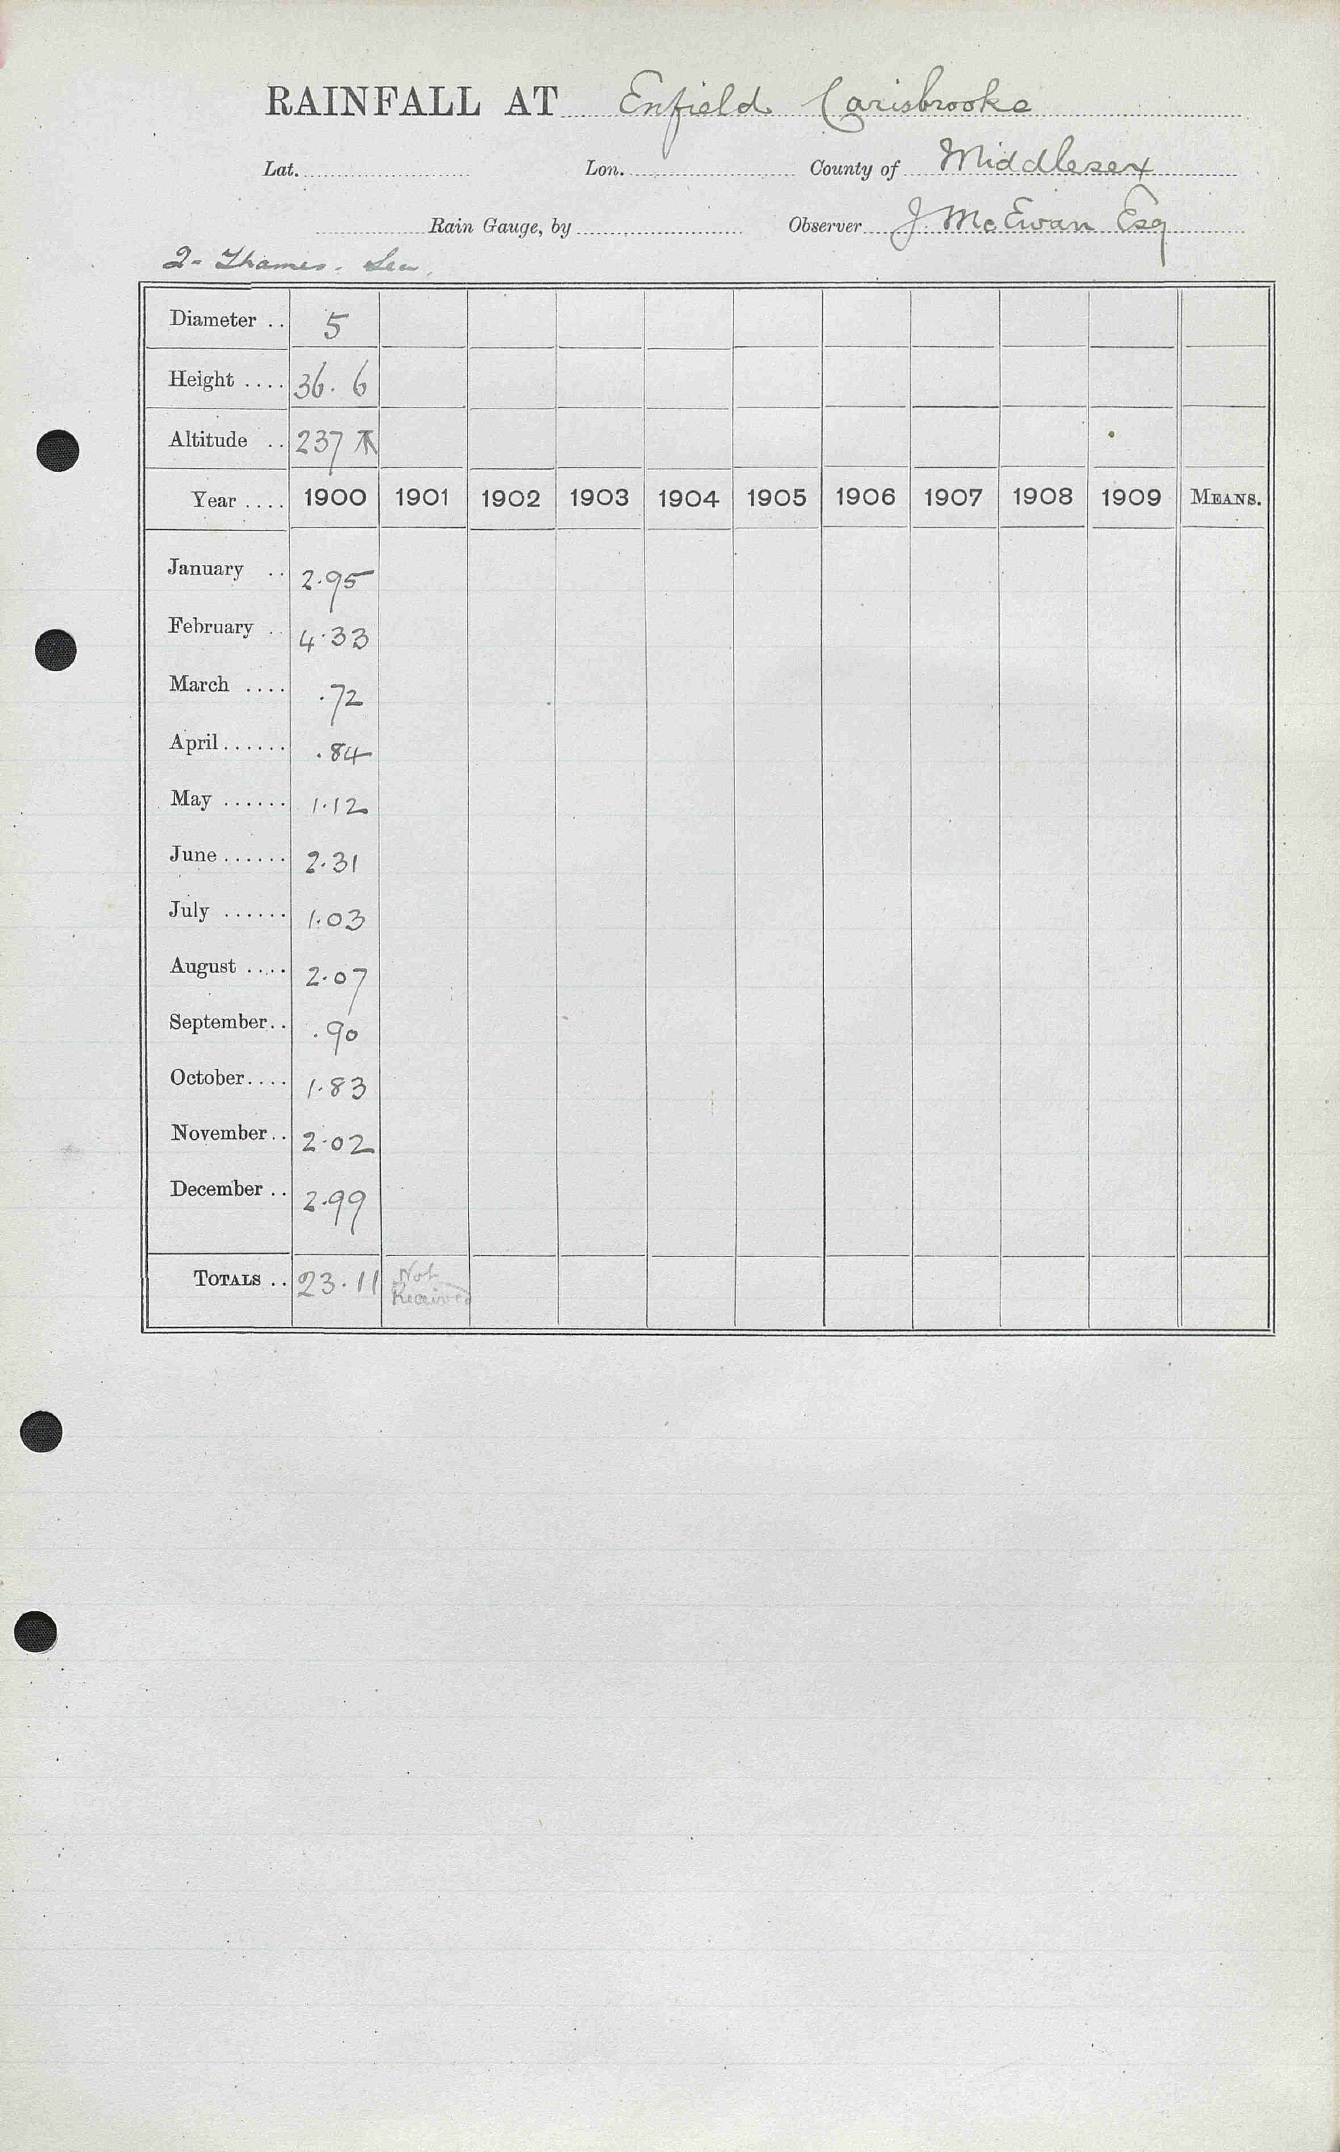 RAINFALL AT Enfield Carisbrooke
Lat. Lon. County of Middlesex
Rain Gauge, by Observer J. McEwan Esq
2- Thames. Lea.
Diameter .. 5
Height .... 36. 6
Altitude .. 237
Year .... 1900 1901 1902 1903 1904 1905 1906 1907 1908 1909 MEANS.
January .. 2.95
February .. 4.33
March .... .72
April ...... .84
May ...... 1.12
June ...... 2.31
July ...... 1.03
August .... 2.07
September .. .90
October .... 1.83
November .. 2.02
December .. 2.99
TOTALS .. 23.11 Not
Received